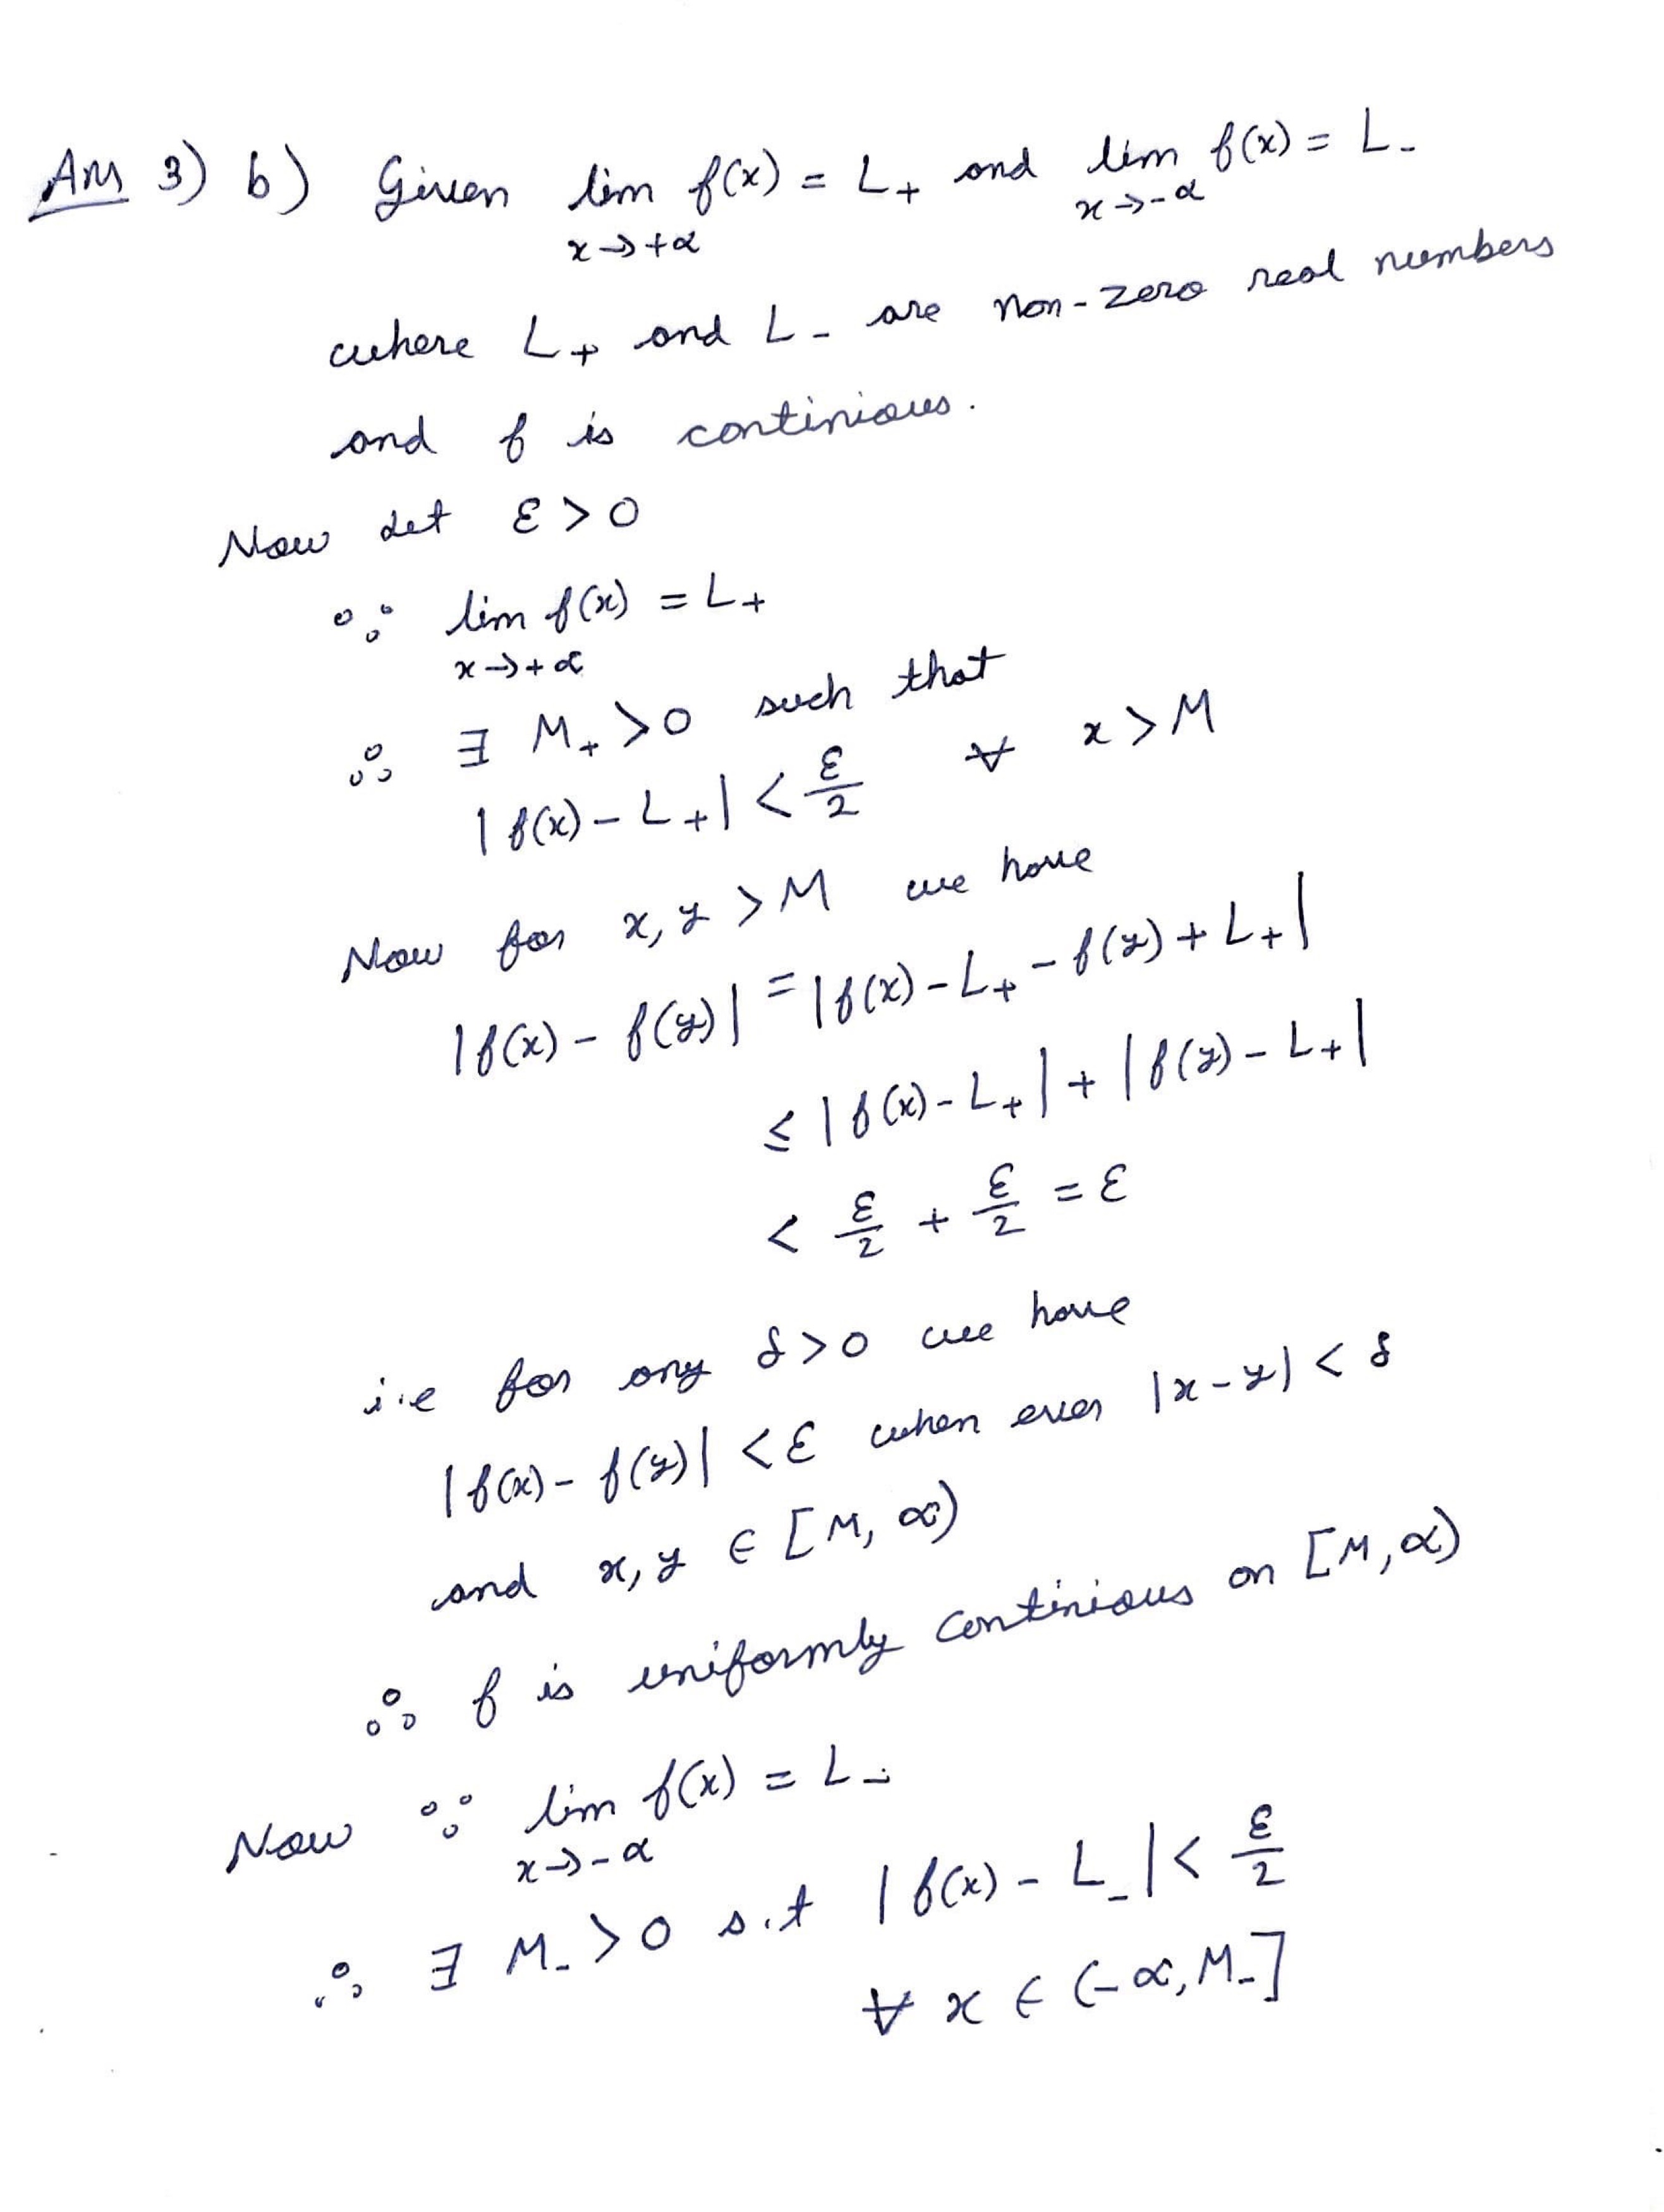 Ans 3) b) Given lim f(x) = L+ and lim f(x) = L-
x→+∝ x→-∝
where L+ and L- are non-zero real numbers
and f is continious.
Now let ε > 0
∵ lim f(x) = L+
x→+∝
∴ ∃ M+ > 0 such that
|f(x) - L+| < ε/2 ∀ x > M
Now for x, y > M we have
|f(x) - f(y)| = |f(x) - L+ - f(y) + L+|
≤ |f(x) - L+| + |f(y) - L+|
< ε/2 + ε/2 = ε
i.e for any δ > 0 we have
|f(x) - f(y)| < ε when ever |x - y| < δ
and x, y ∈ [M, ∞)
∴ f is uniformly continious on [M, ∝)
Now ∵ lim f(x) = L-
x→-∝
∴ ∃ M- > 0 s.t |f(x) - L-| < ε/2
∀ x ∈ (-∝, M-]